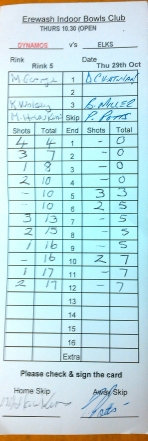 Erewash Indoor Bowls Club
THURS 10.30 (OPEN
DYNAMOS v's ELKS
Rink Rink 5 Date Thu 29th Oct
M George 1
2
3 B. MILLER
Skip P. POTTS
Shots Total End Shots Total
4 4 1 - 0
3 7 2 - 0
1 8 3 - 0
2 10 4 - 0
- 10 5 3 3
- 10 6 2 5
3 13 7 - 5
2 15 8 - 5
1 16 9 - 5
- 16 10 2 7
1 17 11 - 7
2 19 12 - 7
13
14
15
16
Extra
Please check & sign the card
Home Skip Away Skip